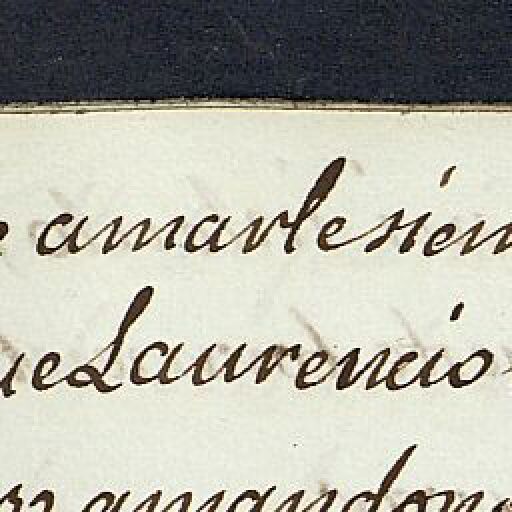 amarle siem
ue Laurencio
amandon